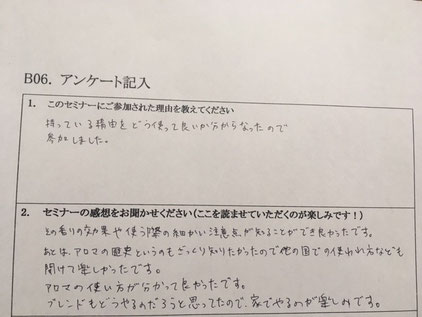 B06. アンケート記入
1. このセミナーにご参加された理由を教えてください
持っている精油をどう使って良いか分からなったので
参加しました。
2. セミナーの感想をお聞かせください(ここを読ませていただくのが楽しみです!)
との香りの効果や使う際の細かい注意点が知ることができ良かったです。
あとは、アロマの歴史というのもざっくり知りたかったので他の国での使われ方なども
聞けて楽しかったです。
アロマの使い方が分かって良かったです。
ブレンドもどうやるのだろうと思ってたので、家でやるのが楽しみです。